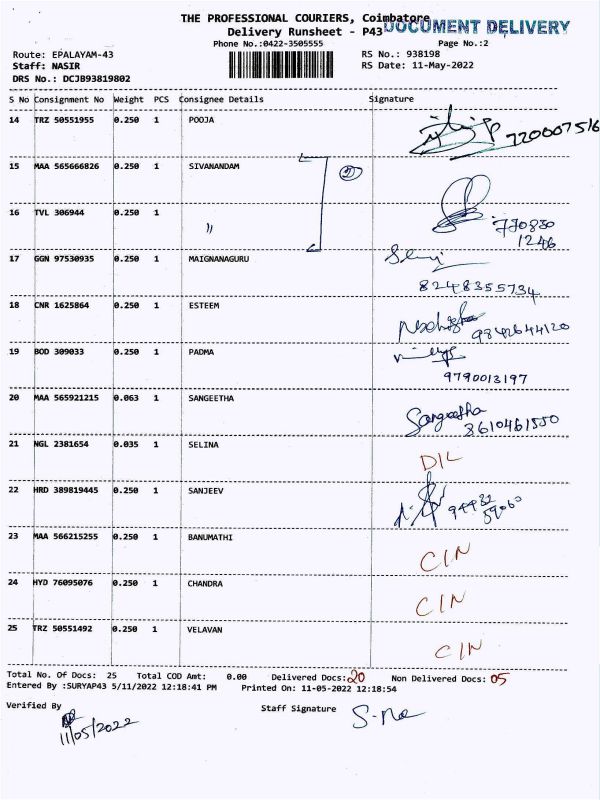 THE PROFESSIONAL COURIERS, Coimbatore
DOCUMENT DELIVERY
Delivery Runsheet - P43
Phone No.:0422-3505555 Page No.:2
Route: EPALAYAM-43 RS No.: 938198
Staff: NASIR RS Date: 11-May-2022
DRS No.: DCJB93819802
S No Consignment No Weight PCS Consignee Details Signature
14 TRZ 50551955 0.250 1 POOJA
720007516
15 MAA 565666826 0.250 1 SIVANANDAM 2
16 TVL 306944 0.250 1 〃
770830
1246
17 GGN 97530935 0.250 1 MAIGNANAGURU
8248355734
18 CNR 1625864 0.250 1 ESTEEM
9842644120
19 BOD 309033 0.250 1 PADMA
9790013197
20 MAA 565921215 0.063 1 SANGEETHA Sangeetha
8610461550
21 NGL 2381654 0.035 1 SELINA D/L
22 HRD 389819445 0.250 1 SANJEEV
23 MAA 566215255 0.250 1 BANUMATHI C/N
24 HYD 76095076 0.250 1 CHANDRA C/N
25 TRZ 50551492 0.250 1 VELAVAN C/N
Total No. Of Docs: 25 Total COD Amt: 0.00 Delivered Docs: 20 Non Delivered Docs: 05
Entered By :SURYAP43 5/11/2022 12:18:41 PM Printed On: 11-05-2022 12:18:54
Verified By Staff Signature
11/05/2022